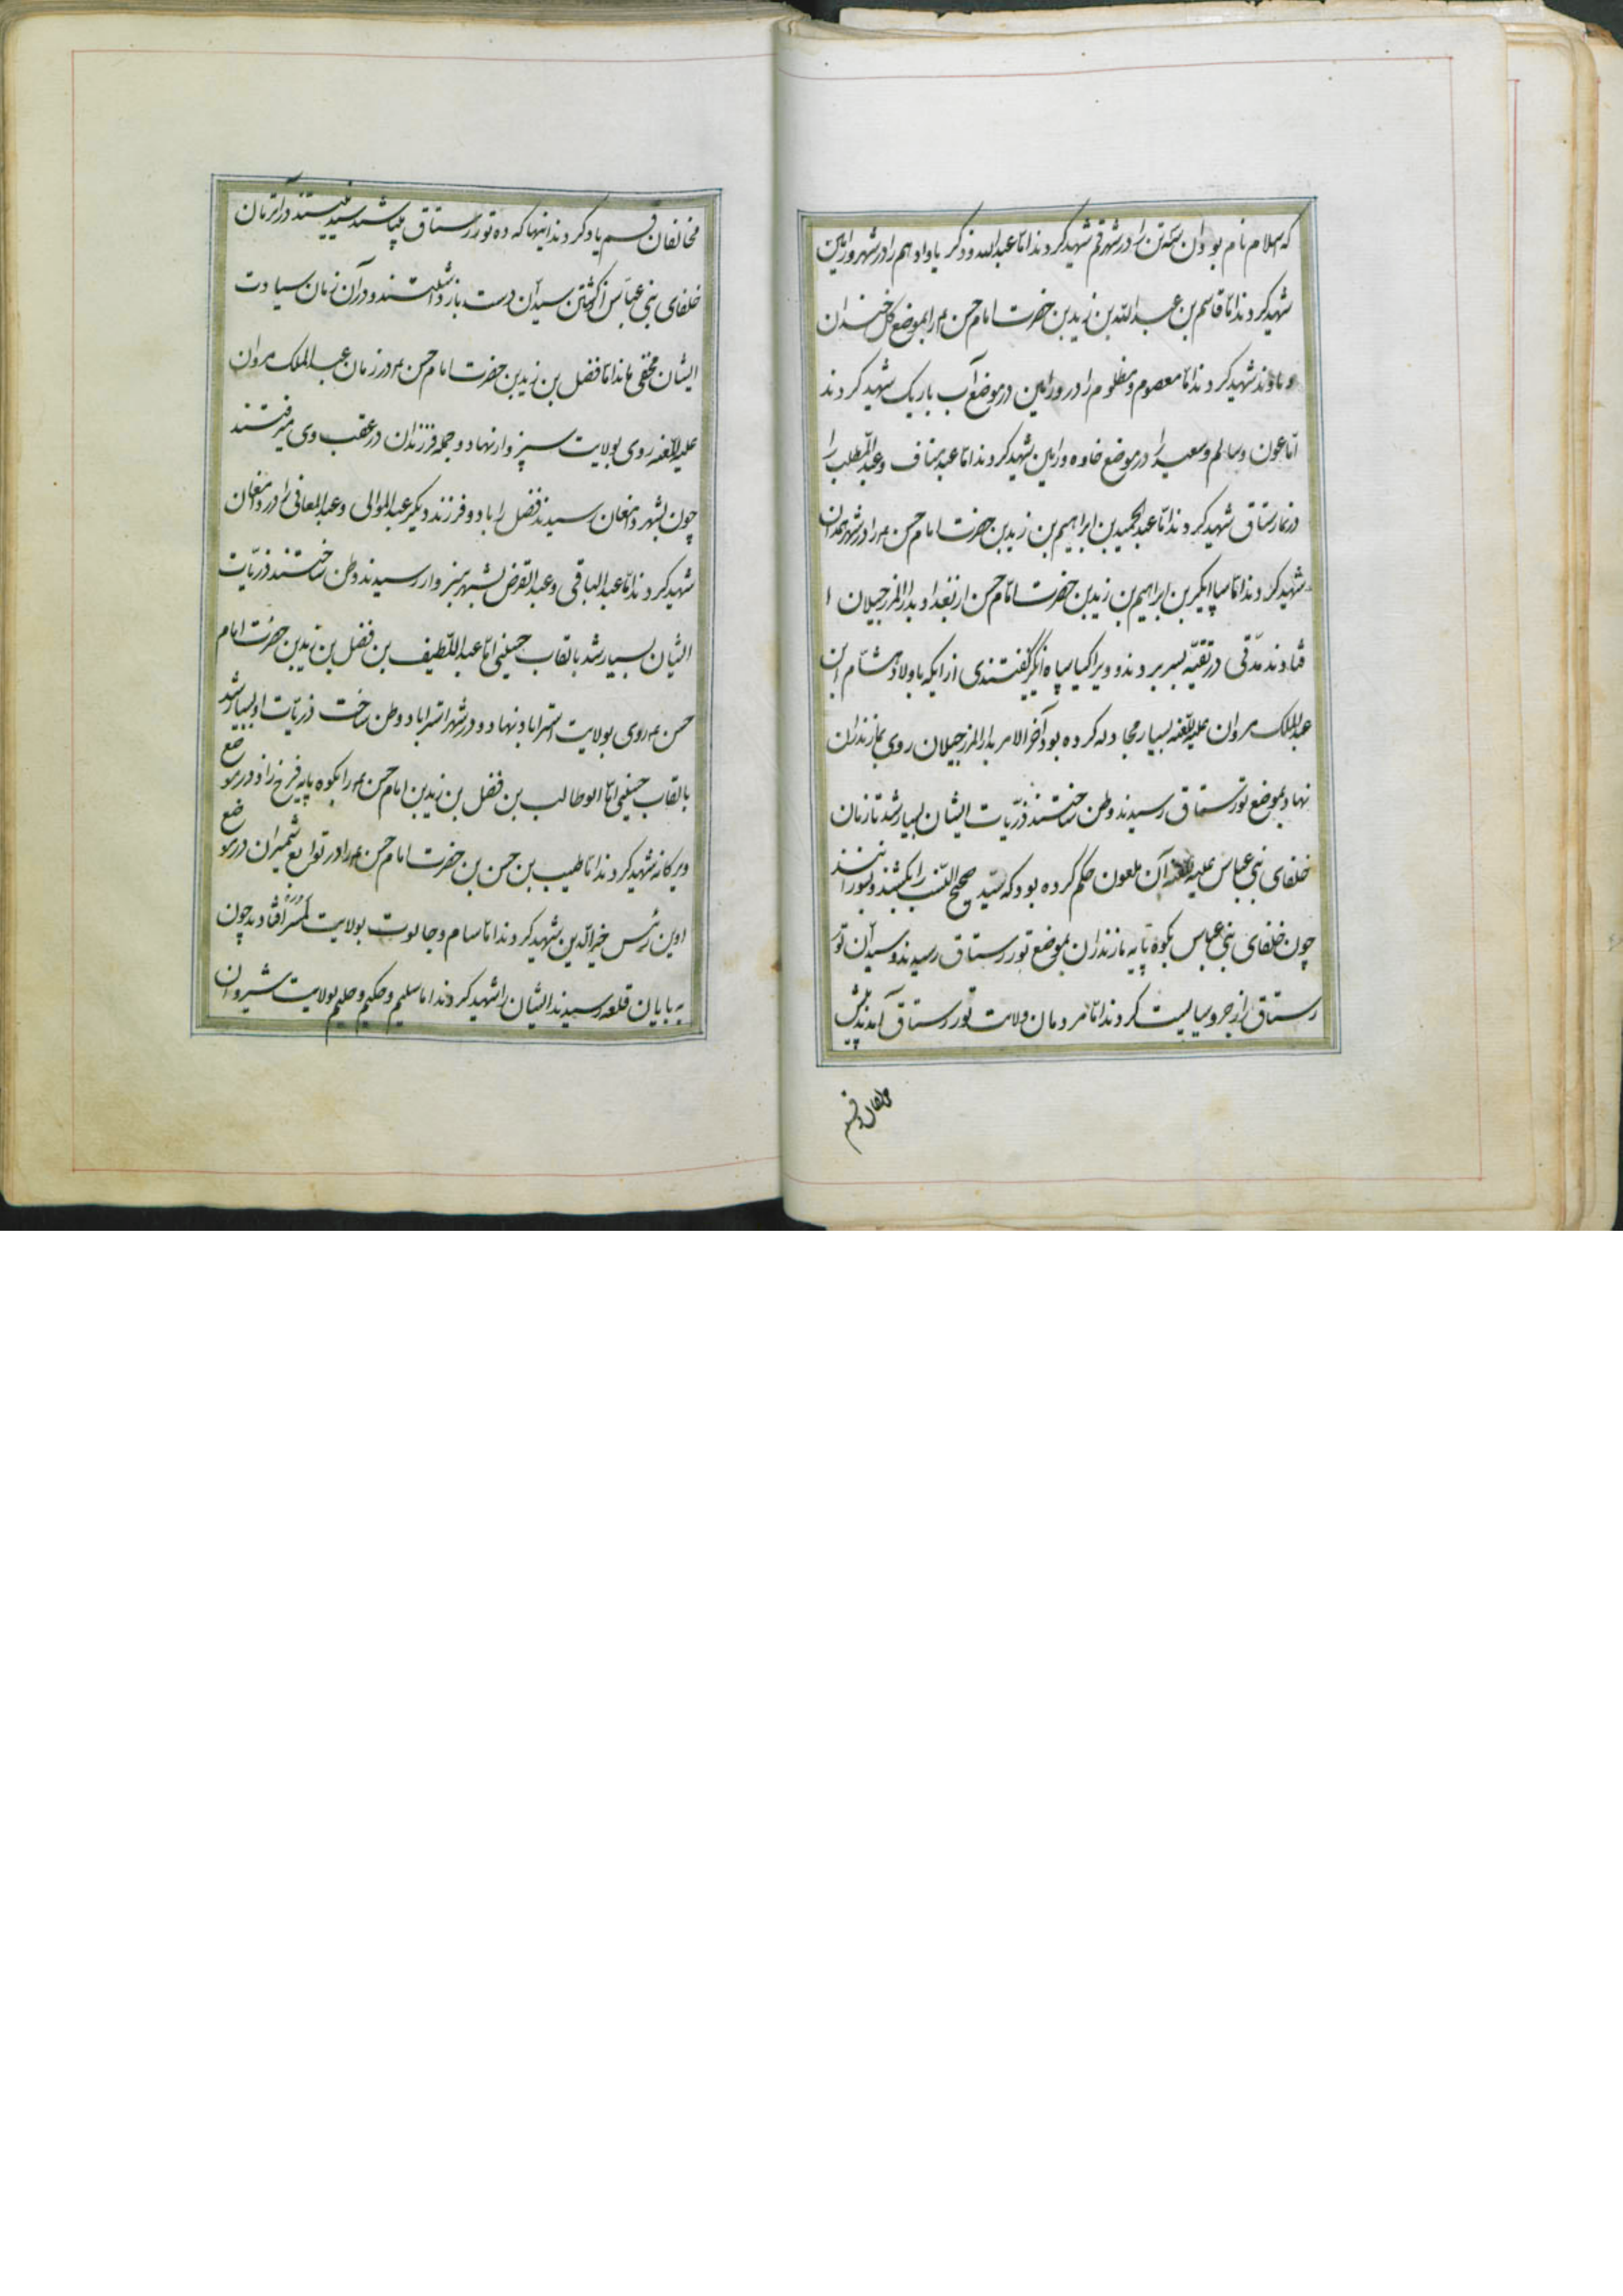 که سلام نام بود آن سه تن را در شهر قم شهید کردند اما عبدالله و ذکریا و ادهم را در شهر ورامین
شهید کردند اما قاسم بن عبدالله بن زید بن حضرت امام حسن ع را بموضع گل خندان
دماوند شهید کردند اما معصوم و مظلوم را در ورامین در موضع آب باریک شهید کردند
اما عون و سالم و سعید را در موضع خاوه ورامین شهید کردند اما عبد مناف و عبدالمطلب را
در نمارستاق شهید کردند اما عبدالحمید بن ابراهیم بن زید بن حضرت امام حسن ع را در شهر همدان
شهید کردند اما بن ابراهیم بن زید بن حضرت امام حسن از بغداد بدار المرز جیلان ا
فتادند مدتی در تقیه بسر بردند و ویرا کیا گفتندی از آنکه با اولاد هشام ابن
عبدالملک مروان علیه اللعنه بسیار مجادله کرده بود آخر الامر بدار المرز جیلان روی بمازندران
نهاد بموضع تورستاق رسیدند وطن ساختند ذریات ایشان بسیار شد تا زمان
خلفای بنی عباس علیه اللعنه آن ملعون حکم کرده بود که سید صحیح النسب را بکشند و بسوزانند
چون خلفای بنی عباس بکوه پایه مازندران بموضع تور رستاق رسیدند و سیدان تور
رستاق را کردند اما مردمان ولایت تور رستاق آمدند پیش
مخالفان قسم
مخالفان قسم یاد کردند اینها که ده تور رستاق میباشند سید نیستند در آنزمان
خلفای بنی عباس از کشتن سیدان دست باز داشتند و در آن زمان سیادت
ایشان مخفی ماند اما فضل بن زید بن حضرت امام حسن ع در زمان عبدالملک مروان
علیه اللعنه روی بولایت سبزوار نهاد و جمله فرزندان در عقب وی میرفتند
چون بشهر دامغان رسیدند فضل را با دو فرزند دیگر عبدالموالی و عبدالمعانی را در دامغان
شهید کردند اما عبدالباقی و بشهر سبزوار رسیدند وطن ساختند ذریات
ایشان بسیار شد بالقاب حسینی اما عبداللطیف بن فضل بن زید بن حضرت امام
حسن ع روی بولایت استراباد نهاد و در شهر استراباد وطن ساخت ذریات او بسیار شد
بالقاب حسینی اما ابوطالب بن فضل بن زید بن امام حسن ع را بکوه پایه فرخ زاد در موضع
ویرکانه شهید کردند اما طیب بن حسن بن حضرت امام حسن ع را در توابع شمیران در موضع
اوین خیرالدین شهید کردند اما سام و جالوت بولایت افتادند چون
به بابان قلعه رسیدند ایشان را شهید کردند اما سلیم و حکیم و حلیم بولایت شیروان